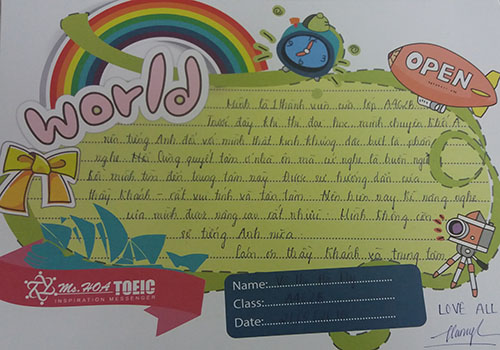 world
OPEN
Mình là 1 thành viên của lớp A96CB
Trước đây khi thi đại học, mình chuyên khối A
nên tiếng Anh đối với mình thật kinh khủng đặc biệt là phần
nghe. Mỗi quyết tâm ở nhà ôn mà cứ nghe là buồn ngủ
mình tìm đến trung tâm này. Được sự hướng dẫn của
thầy Khánh - rất vui tính và tận tâm. Nên hiện nay kĩ năng nghe
của mình được nâng cao rất nhiều. Mình không còn
sợ tiếng Anh nữa.
Cảm ơn thầy Khánh và trung tâm
Ms.HOA TOEIC
INSPIRATION MESSENGER
Name:
Class:
Date:
LOVE ALL